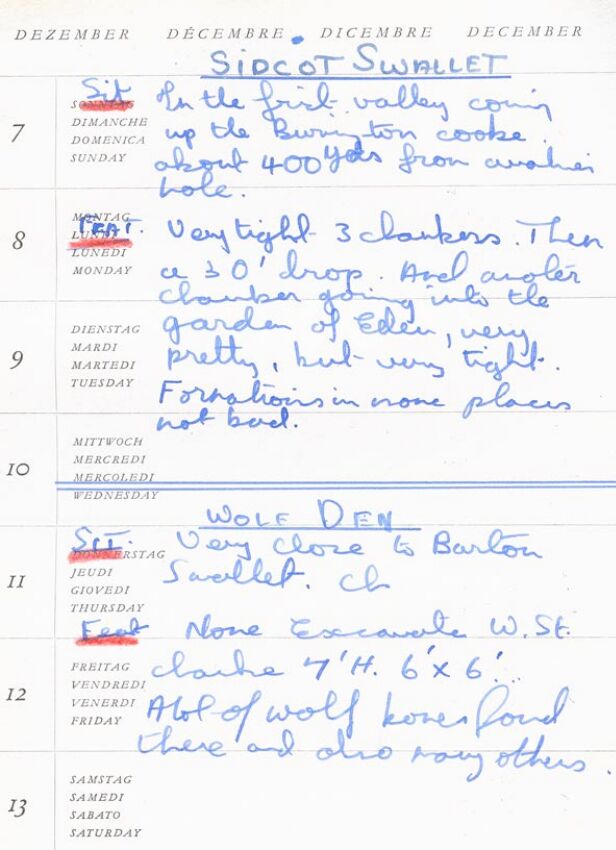 DEZEMBER DÉCEMBRE DICEMBRE DECEMBER
SIDCOT SWALLET
7
SONNTAG
DIMANCHE
DOMENICA
SUNDAY
Sit
In the first valley coming
up the Burrington
about 400 yds from
hole.
8
MONTAG
LUNDI
LUNEDI
MONDAY
FEAT.
Very tight 3 chambers. Then
a 30' drop. And another
chamber going into the
garden of Eden, very
pretty, but very tight.
Formations in places
not bad.
9
DIENSTAG
MARDI
MARTEDI
TUESDAY
10
MITTWOCH
MERCREDI
MERCOLEDI
WEDNESDAY
WOLF DEN
11
DONNERSTAG
JEUDI
GIOVEDI
THURSDAY
SIT.
Very close to Barton
Swallet. Ch
Feat
None Excavate W. St.
7'H. 6'x 6'.
12
FREITAG
VENDREDI
VENERDI
FRIDAY
A lot of wolf bones found
there and also many others.
13
SAMSTAG
SAMEDI
SABATO
SATURDAY